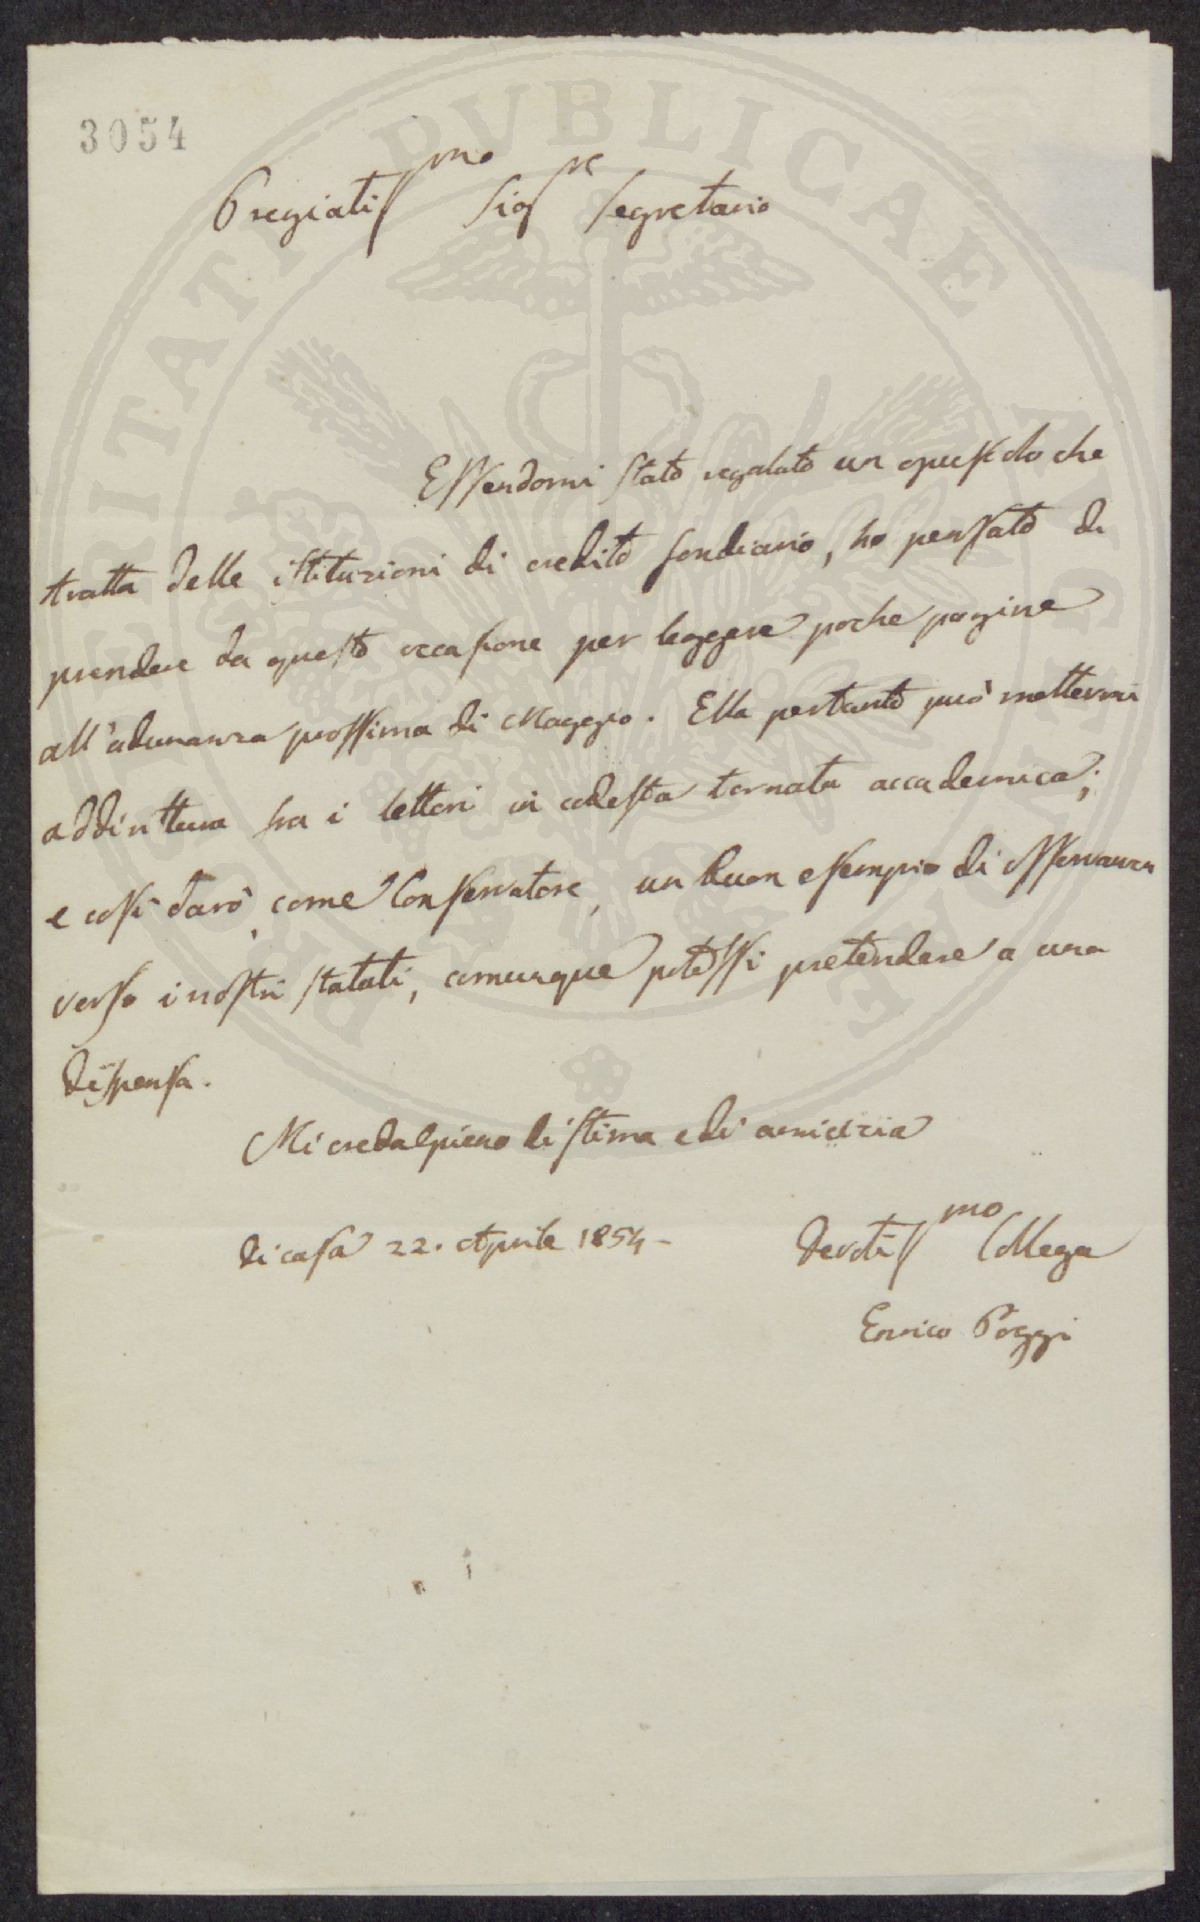 3054
Pregiatiss.mo Sig.re Segretario
Essendomi stato regalato un opuscolo che
tratta delle istituzioni di credito fondiario, ho pensato di
prendere da questo occasione per leggere poche pagine
all'adunanza prossima di Maggio. Ella pertanto può mettermi
addirittura fra i lettori di codesta tornata accademica;
e così darò, come Conservatore, un buon esempio di osservanza
verso i nostri statuti, comunque potessi pretendere a una
dispensa.
Mi creda pieno di stima e di amicizia
Di casa 22. Aprile 1854
Devotiss.mo Collega
Enrico Poggi
PROSPERITATI PVBLICAE AVGENDAE